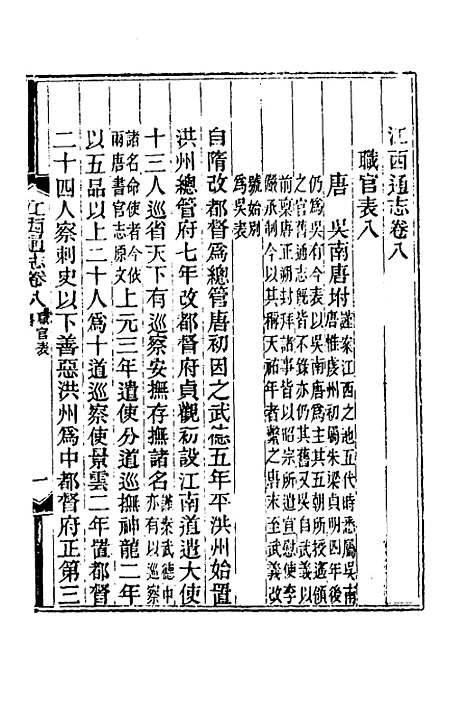 江西通志卷八
職官表八
唐 吳南唐坿 謹案江西之地五代時悉屬吳南
唐惟虔州初屬朱梁貞明四年後
仍爲吳有今表以吳南唐爲主其五朝所授遙領
之官舊通志既皆不錄亦仍其舊又吳自武義以
前稟唐正朔封拜諸事皆以昭宗所遣宣慰使李
儼承制今以其稱天祐年者繫之唐末至武義改
號始別
爲吳表
自隋改都督爲總管唐初因之武德五年平洪州始置
洪州總管府七年改都督府貞觀初設江南道遣大使
十三人巡省天下有巡察安撫存撫諸名 謹案武德中亦有巡察
諸名命使者今依兩唐書官志原文 上元三年遣使分道巡撫神龍二年
以五品以上二十人爲十道巡察使景雲二年置都督
二十四人察刺史以下善惡洪州爲中都督府正第三
江西通志卷八 職官表 一